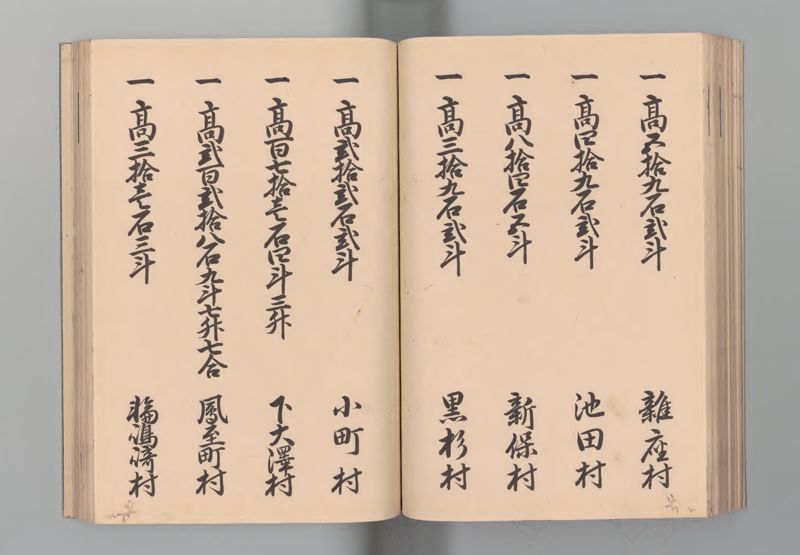 一 高五拾九石弐斗 雑座村
一 高四拾九石弐斗 池田村
一 高八拾四石五斗 新保村
一 高三拾九石弐斗 黒杉村
一 高弐拾弐石弐斗 小町村
一 高百七拾壱石四斗三升 下大澤村
一 高弐百弐拾八石九斗七升七合 鳳至町村
一 高三拾壱石三斗 村